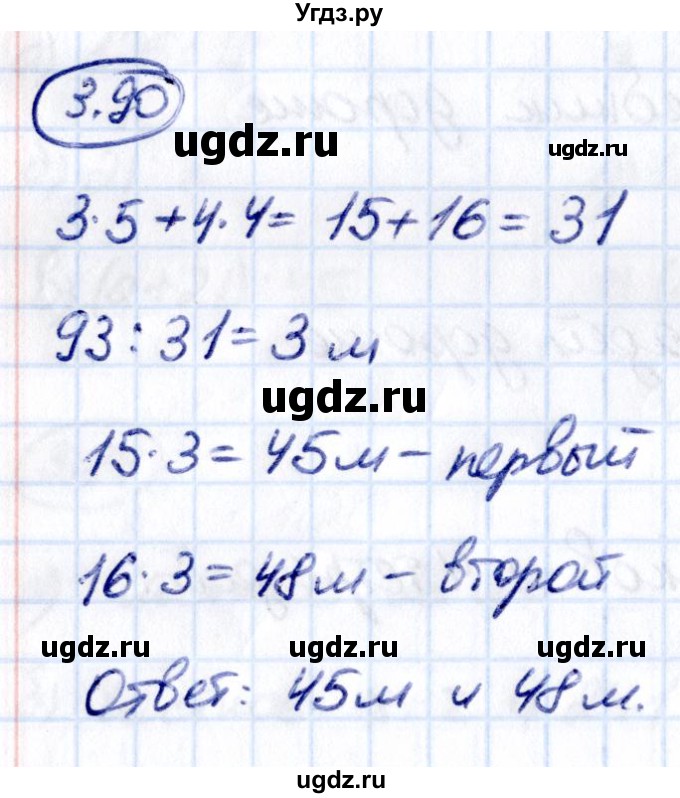 Угдз.ру
3.90
ugdz.ru ugdz.ru
3·5+4·4= 15+16= 31
93:31=3м
ugdz.ru
15·3= 45м – первый
16·3= 48м – второй
ugdz.ru ugdz.ru ugdz.ru
Ответ: 45м и 48м.
ugdz.ru